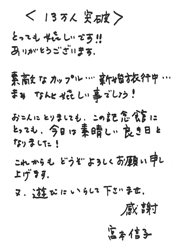 〈 13万人 突破 〉
とっても 嬉しいです!!
ありがとうございます。
素敵なカップル… 新婚旅行中…
まぁ なんと 嬉しい事でしょう!
おこんにとりましても、この記念館に
とっても、今日は素晴しい良き日と
なりました!
これからも どうぞよろしくお願い申し
上げます。
又、遊びにいらして下さいませ。
感謝
宮本信子